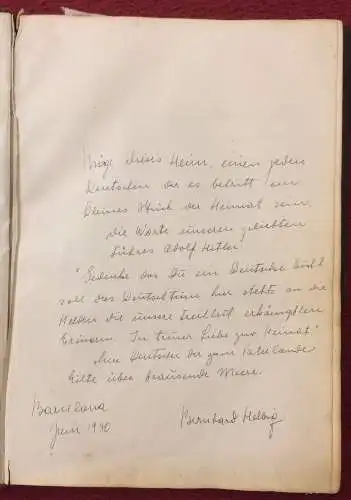 Möge dieses Heim, einen jeden
Deutschen der es betritt ein
kleines Stück der Heimat sein,
die Worte unseren geliebten
Führes Adolf Hitler
"Gedenke das Du ein Deutscher bist
soll das Deutschtum hier stehts an die
Helden die unsere Freiheit erkämpften
Erinern. In treuer Liebe zur Heimat"
Ein Deutscher der zum Vaterlande
Eilte über brausende Meere.
Barcelona
Juni 1940
Bernhard Helbig